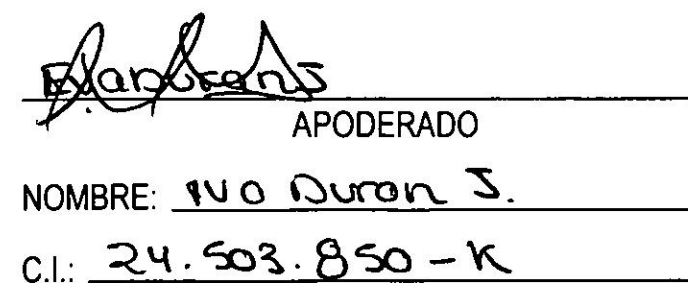 APODERADO
NOMBRE: IVO Duran J.
C.I.: 24.503.850-K